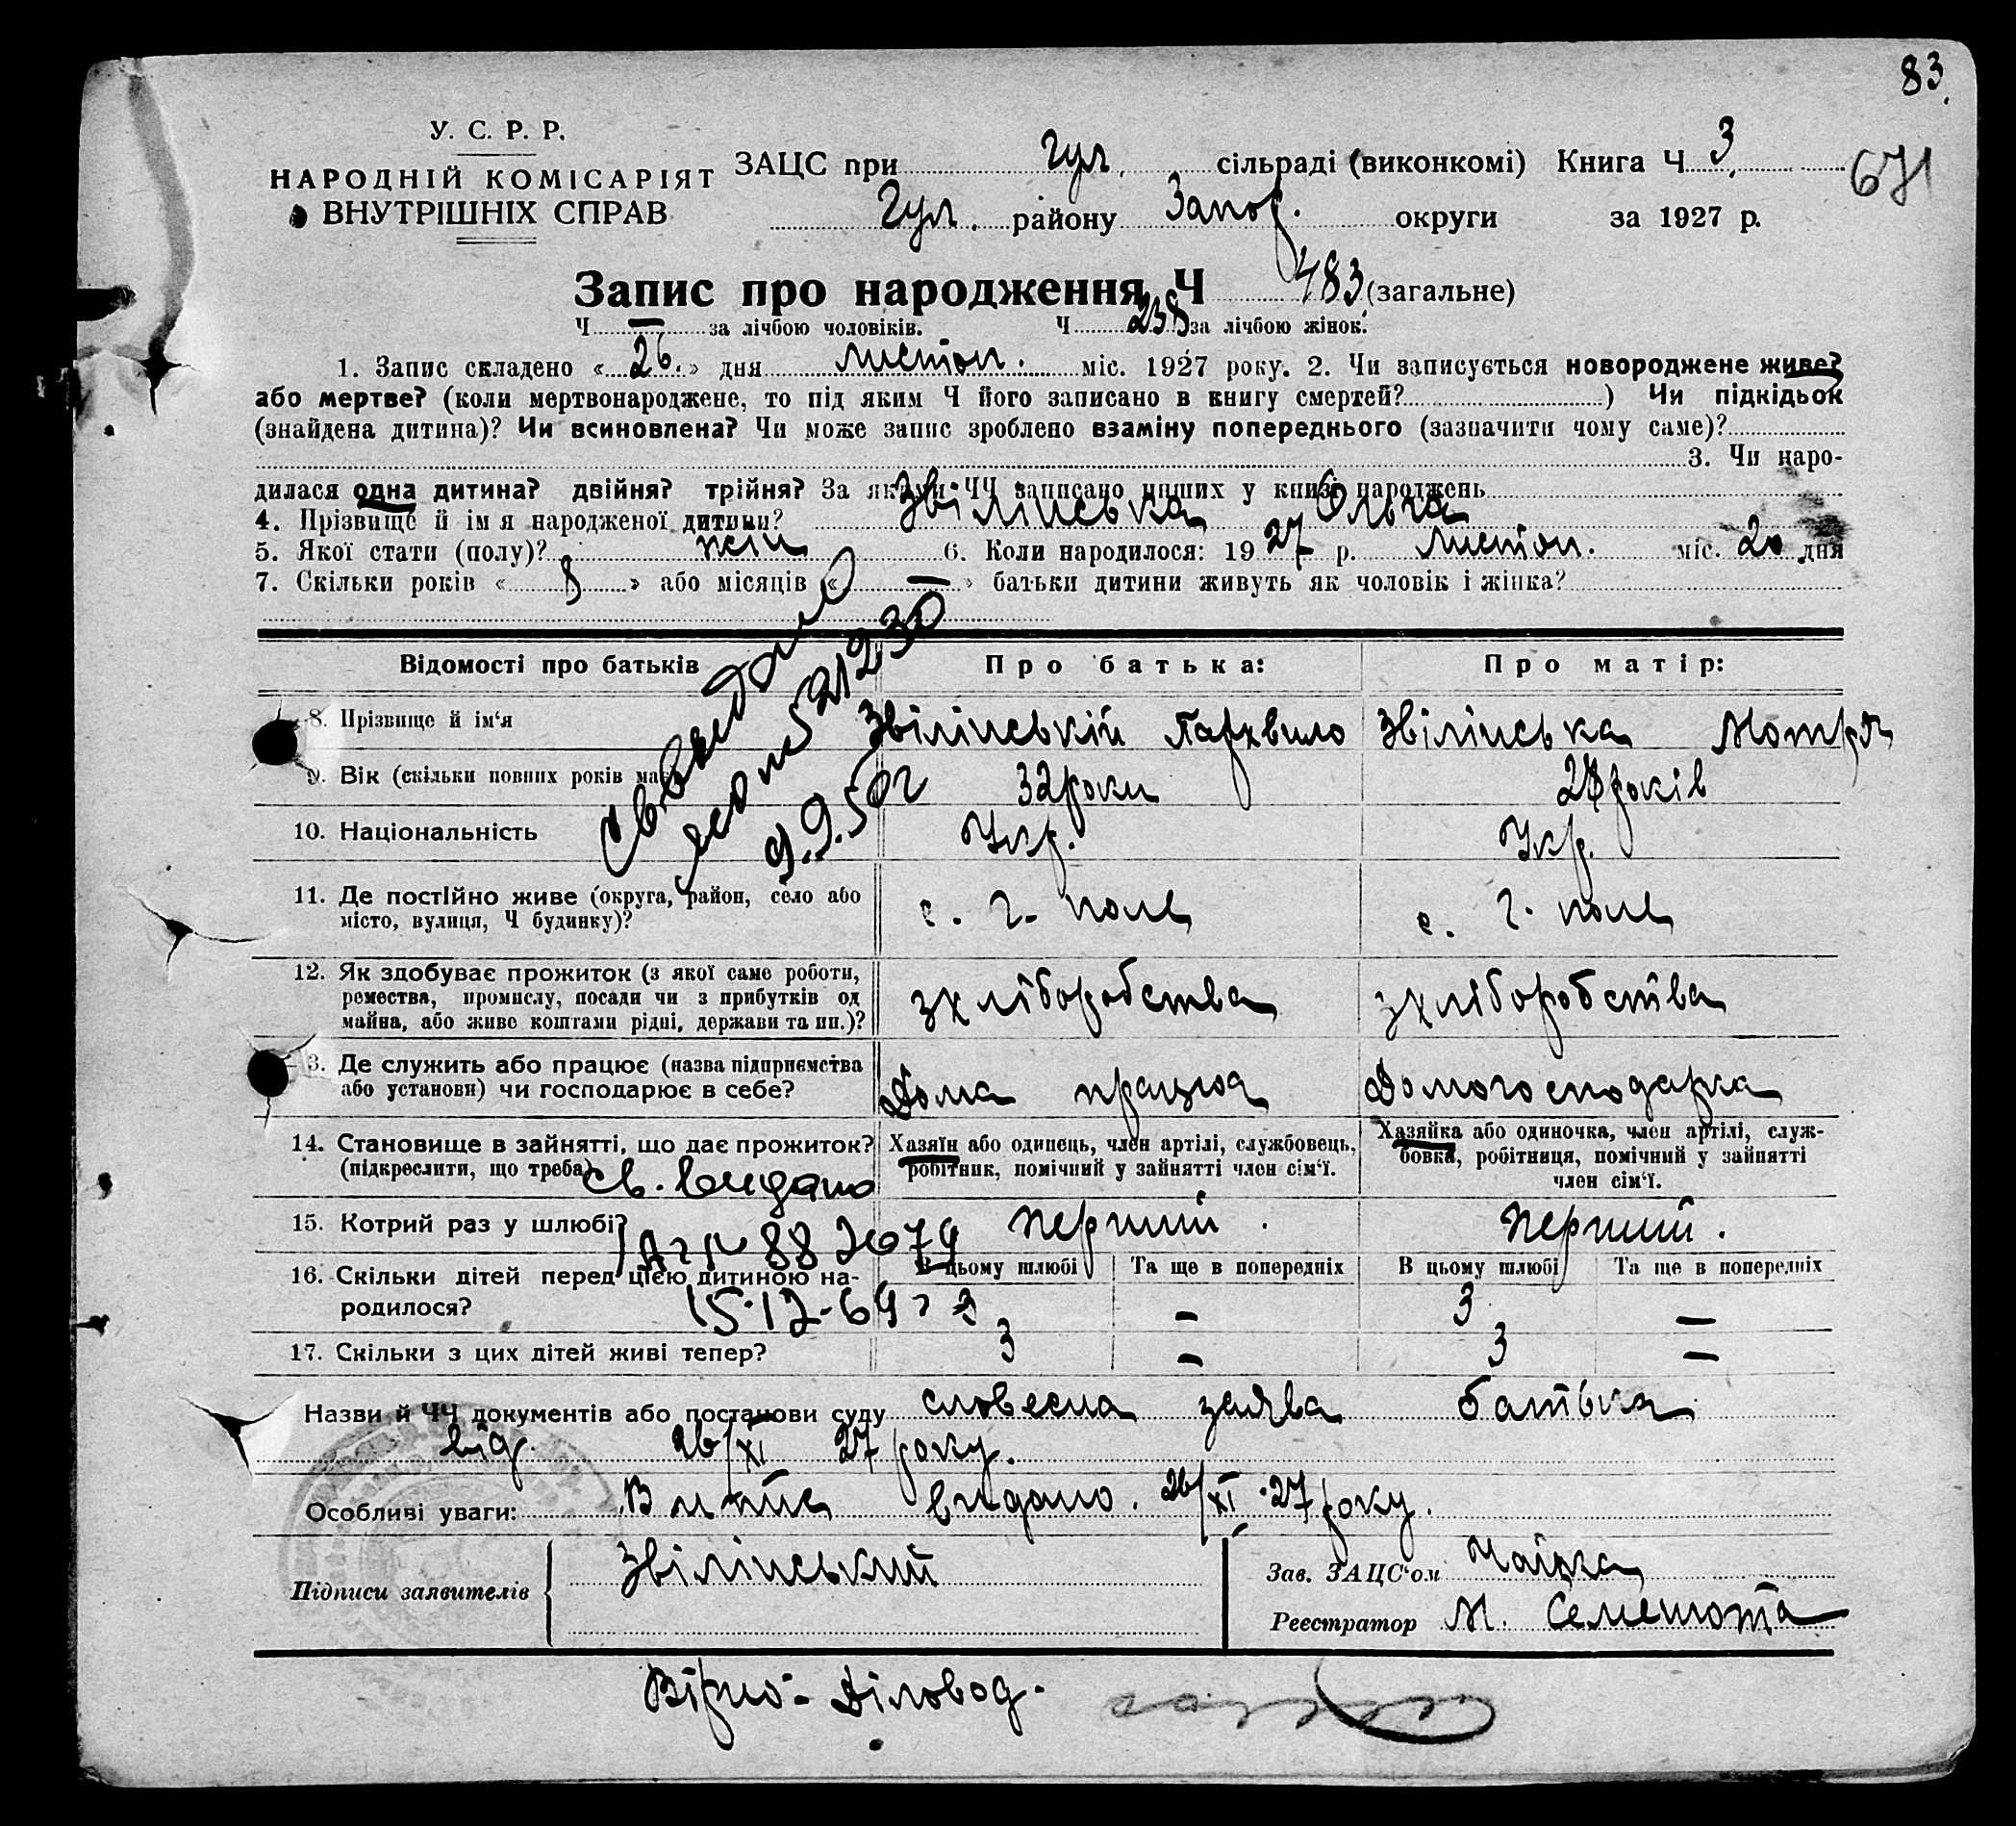 83.
671
У. С. Р. Р.
НАРОДНІЙ КОМІСАРІЯТ
ВНУТРІШНІХ СПРАВ
ЗАЦС при Гул. сільраді (виконкомі) Книга Ч 3
Гул. району Запор. округи за 1927 р.
Запис про народження Ч 483 (загальне)
Ч — за лічбою чоловіків. Ч 238 за лічбою жінок.
1. Запис складено «26.» дня листоп. міс. 1927 року. 2. Чи записується новороджене живе?
або мертве? (коли мертвонароджене, то під яким Ч його записано в книгу смертей? ) Чи підкідьок
(знайдена дитина)? Чи всиновлена? Чи може запис зроблено взаміну попереднього (зазначити чому саме)?
3. Чи наро-
дилася одна дитина? двійня? трійня? За якими ЧЧ записано инших у книзі народжень
4. Прізвище й ім я народженої дитини? Звілінська Ольга
5. Якої стати (полу)? жін 6. Коли народилося: 1927 р. листоп. міс. 20 дня
7. Скільки років «8» або місяців «—» батьки дитини живуть як чоловік і жінка?
Відомості про батьків Про батька: Про матір:
8. Прізвище й ім‘я Звілінській Пархвило Звілінська Мотря
9. Вік (скільки повних років 32 роки 28 років
10. Національність Укр. Укр.
9.9.50г
11. Де постійно живе (округа, район, село або
місто, вулиця, Ч будинку)? с. Г. поле с. Г. поле
12. Як здобуває прожиток (з якої саме роботи,
ремества, промислу, посади чи з прибутків од
майна, або живе коштами рідні, держави та ин.)? з хліборобства з хліборобства
3. Де служить або працює (назва підприємства
або установи) чи господарює в себе? Дома працює Домогосподарка
14. Становище в зайнятті, що дає прожиток?
(підкреслити, що треба) Хазяїн або одинець, член артілі, службовець,
робітник, помічний у зайнятті член сім‘ї. Хазяйка або одиночка, член артілі, служ-
бовка, робітниця, помічний у зайнятті
член сім‘ї.
св. видано
15. Котрий раз у шлюбі? перший. перший.
882679
16. Скільки дітей перед цією дитиною на-
родилося? В цьому шлюбі Та ще в попередніх В цьому шлюбі Та ще в попередніх
15.12-69г 3 — 3 —
17. Скільки з цих дітей живі тепер? 3 — 3 —
Назви й ЧЧ документів або постанови суду словесна заява батька
від 26/XI 27 року.
Особливі уваги: Витяг видано. 26/XI.27 року.
Підписи заявителів Звілінський
Зав. ЗАЦС‘ом Чайка
Реєстратор М. Семенота
Вірно:- Діловод.